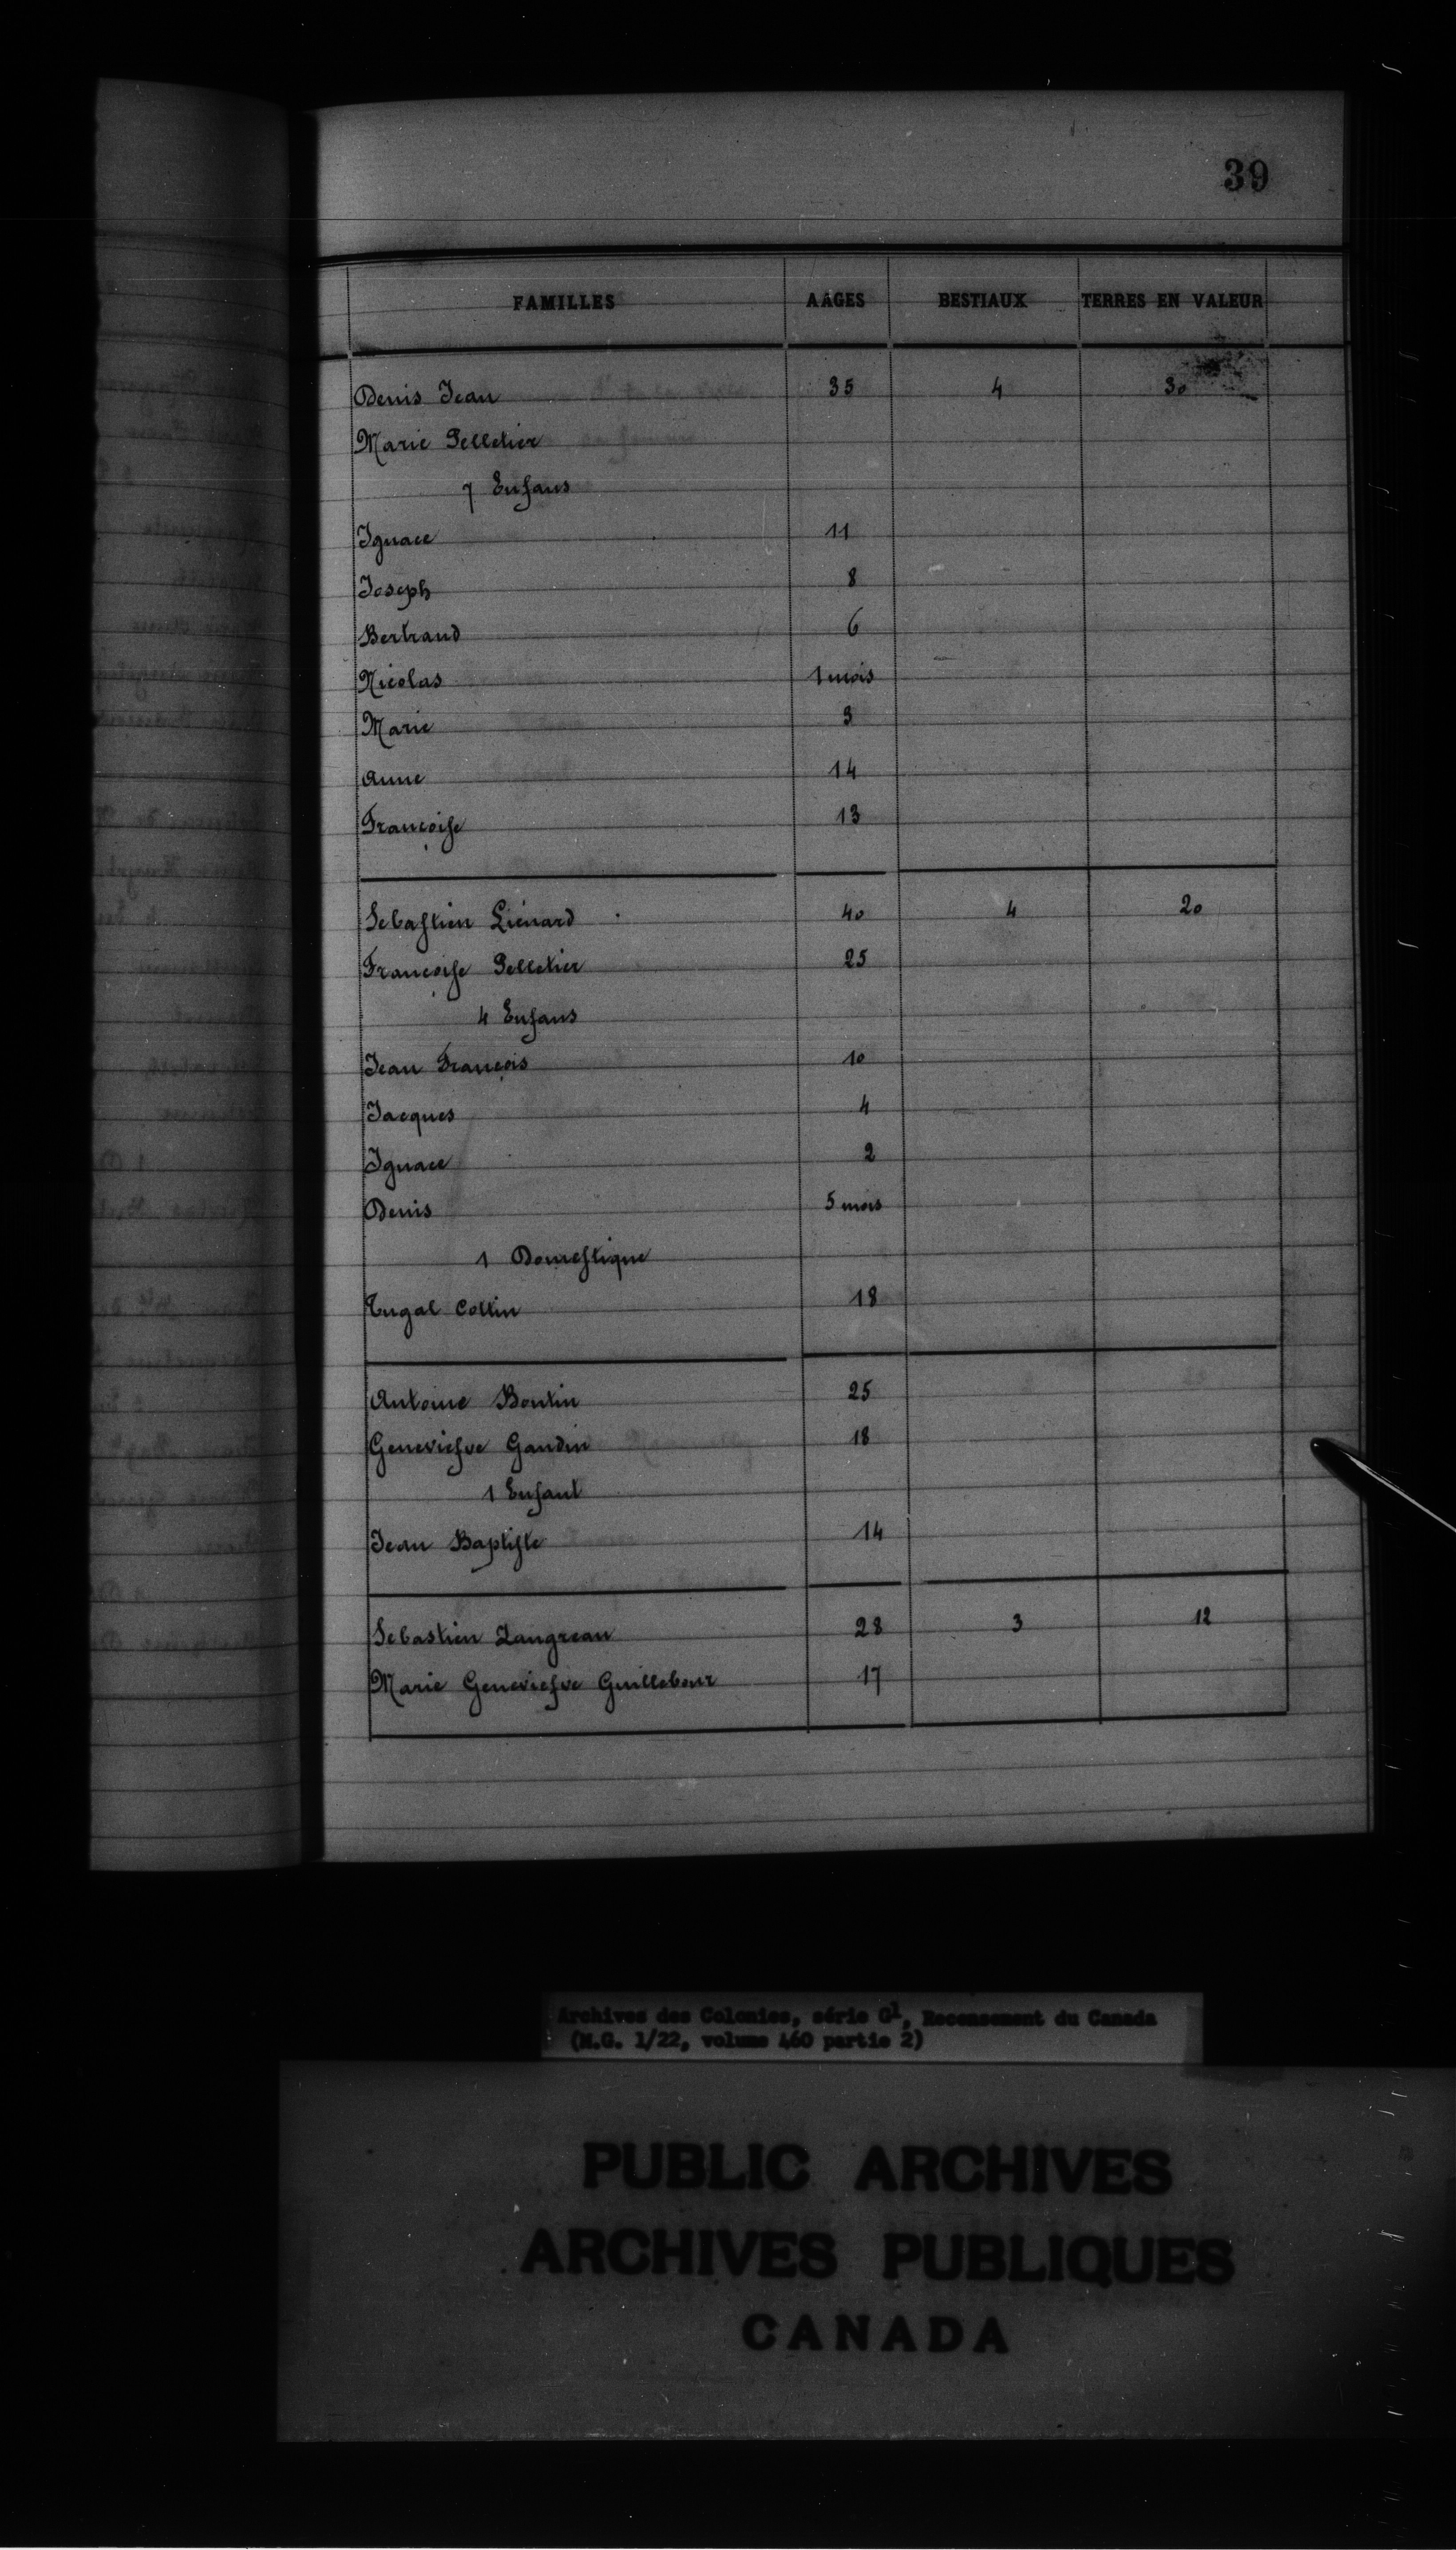 39
FAMILLES AAGES BESTIAUX TERRES EN VALEUR
Denis Jean 35 4 30
Marie Pelletier
7 Enfans
Ignace 11
Joseph 8
Bertrand 6
Nicolas 1 mois
Marie 3
Anne 14
Françoise 13
Sebastien Liénard 40 4 20
Françoise Pelletier 25
4 Enfans
Jean François 10
Jacques 4
Ignace 2
Denis 5 mois
1 Domestique
Tugal Cottin 18
Antoine Boutin 25
Geneviefve Gaudin 18
1 Enfant
Jean Baptiste 14
Sebastien Langreau 28 3 12
Marie Geneviefve Guillebour 17
Archives des Colonies, série G1, Recensement du Canada
(M.G. 1/22, volume 460 partie 2)
PUBLIC ARCHIVES
ARCHIVES PUBLIQUES
CANADA